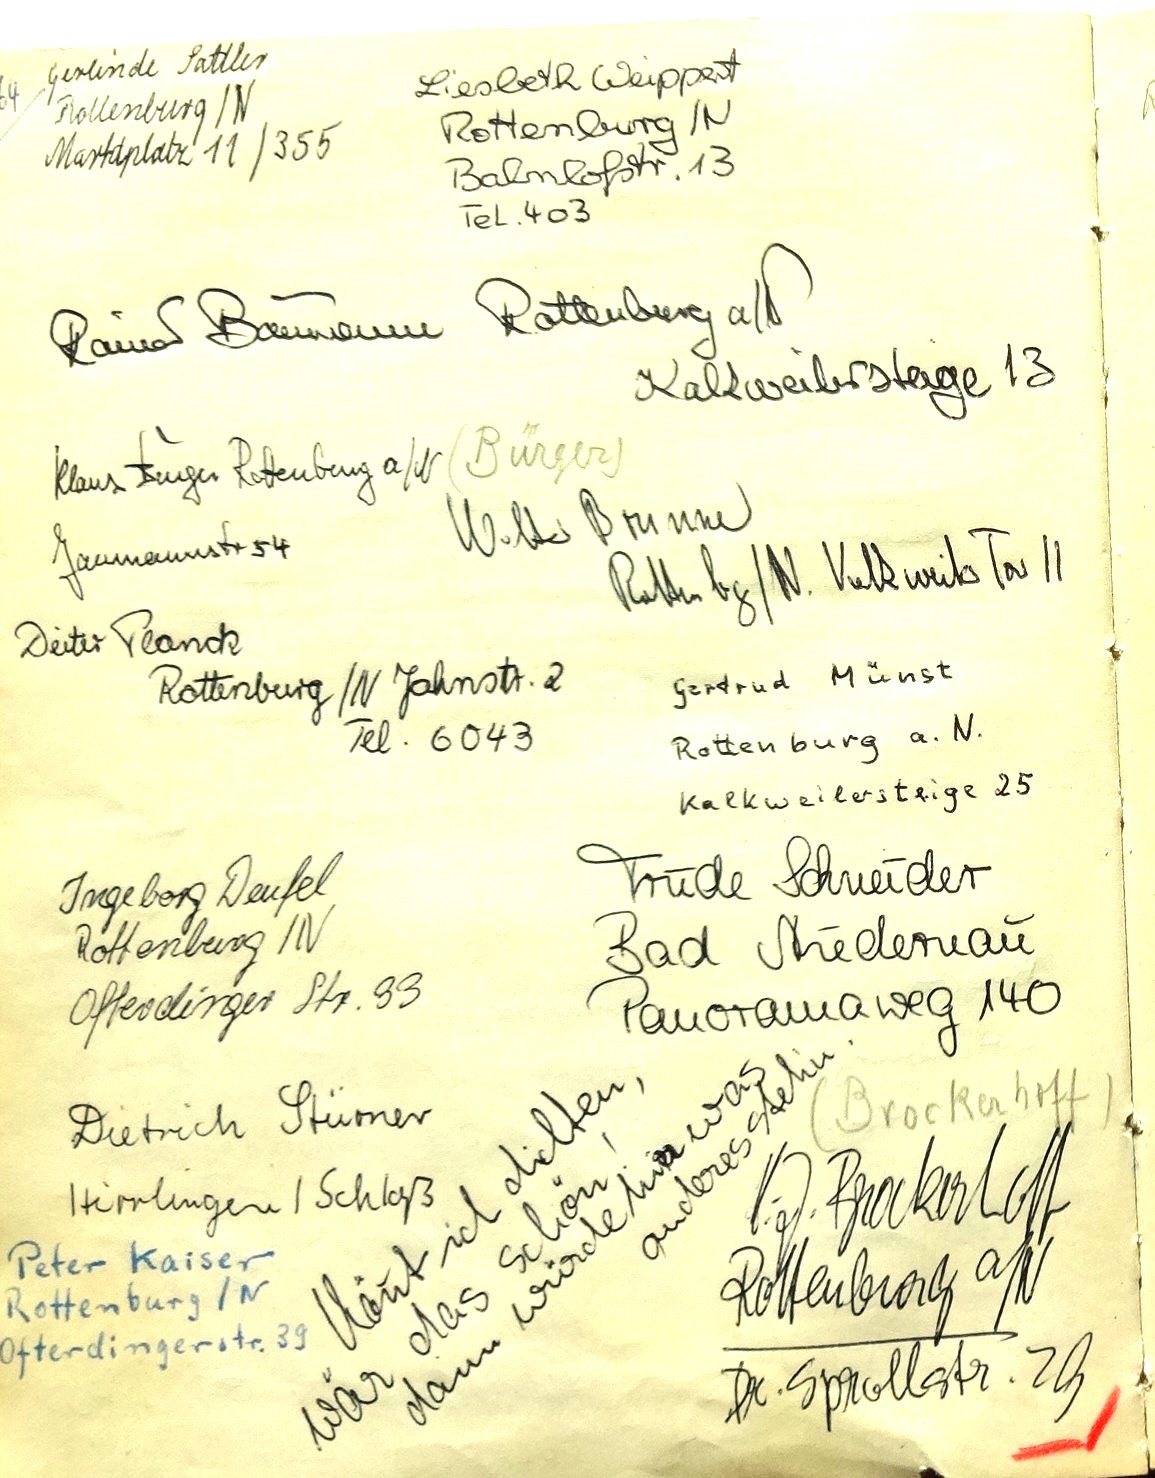 64
Gerlinde Sattler
Rottenburg/N
Marktplatz 11/355
Liesbeth Weippert
Rottenburg/N
Bahnhofstr. 13
Tel. 403
Rainer Baumann Rottenburg a/N
Kalkweilersteige 13
Klaus Rottenburg a/N (Bürger)
Jaumannstr 54
Walter Brunner
Rottenbg/N. Kalkweiler Tor 11
Dieter Planck
Rottenburg/N Jahnstr. 2
Tel. 6043
Gertrud Münst
Rottenburg a. N.
Kalkweilersteige 25
Ingeborg Deufel
Rottenburg/N
Ofterdinger Str. 33
Trude Schneider
Bad Niedernau
Panoramaweg 140
Dietrich Stürner
Hirrlingen / Schloß
Peter Kaiser
Rottenburg/N
Ofterdingerstr. 39
Könnt ich dichten,
wär das schön,
dann würde hier was
anderes stehn.
(Brockerhoff)
Brockerhoff
Rottenburg a/N
Dr. Sprollstr. 29